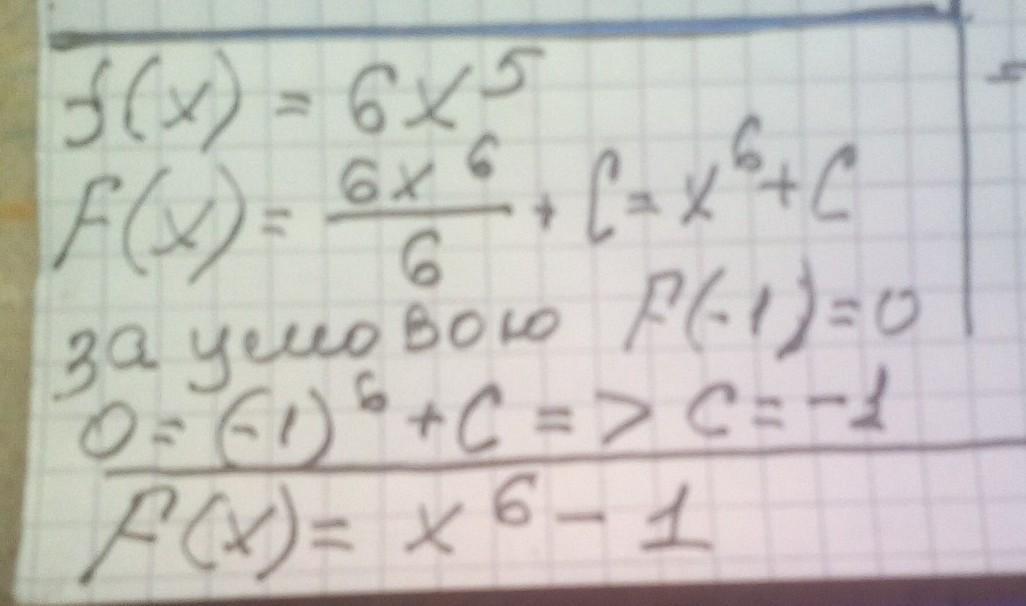 f(x) = 6x⁵
F(x) = 6x⁶/6 + C = x⁶ + C
за умовою F(-1) = 0
0 = (-1)⁶ + C => C = -1
F(x) = x⁶ - 1